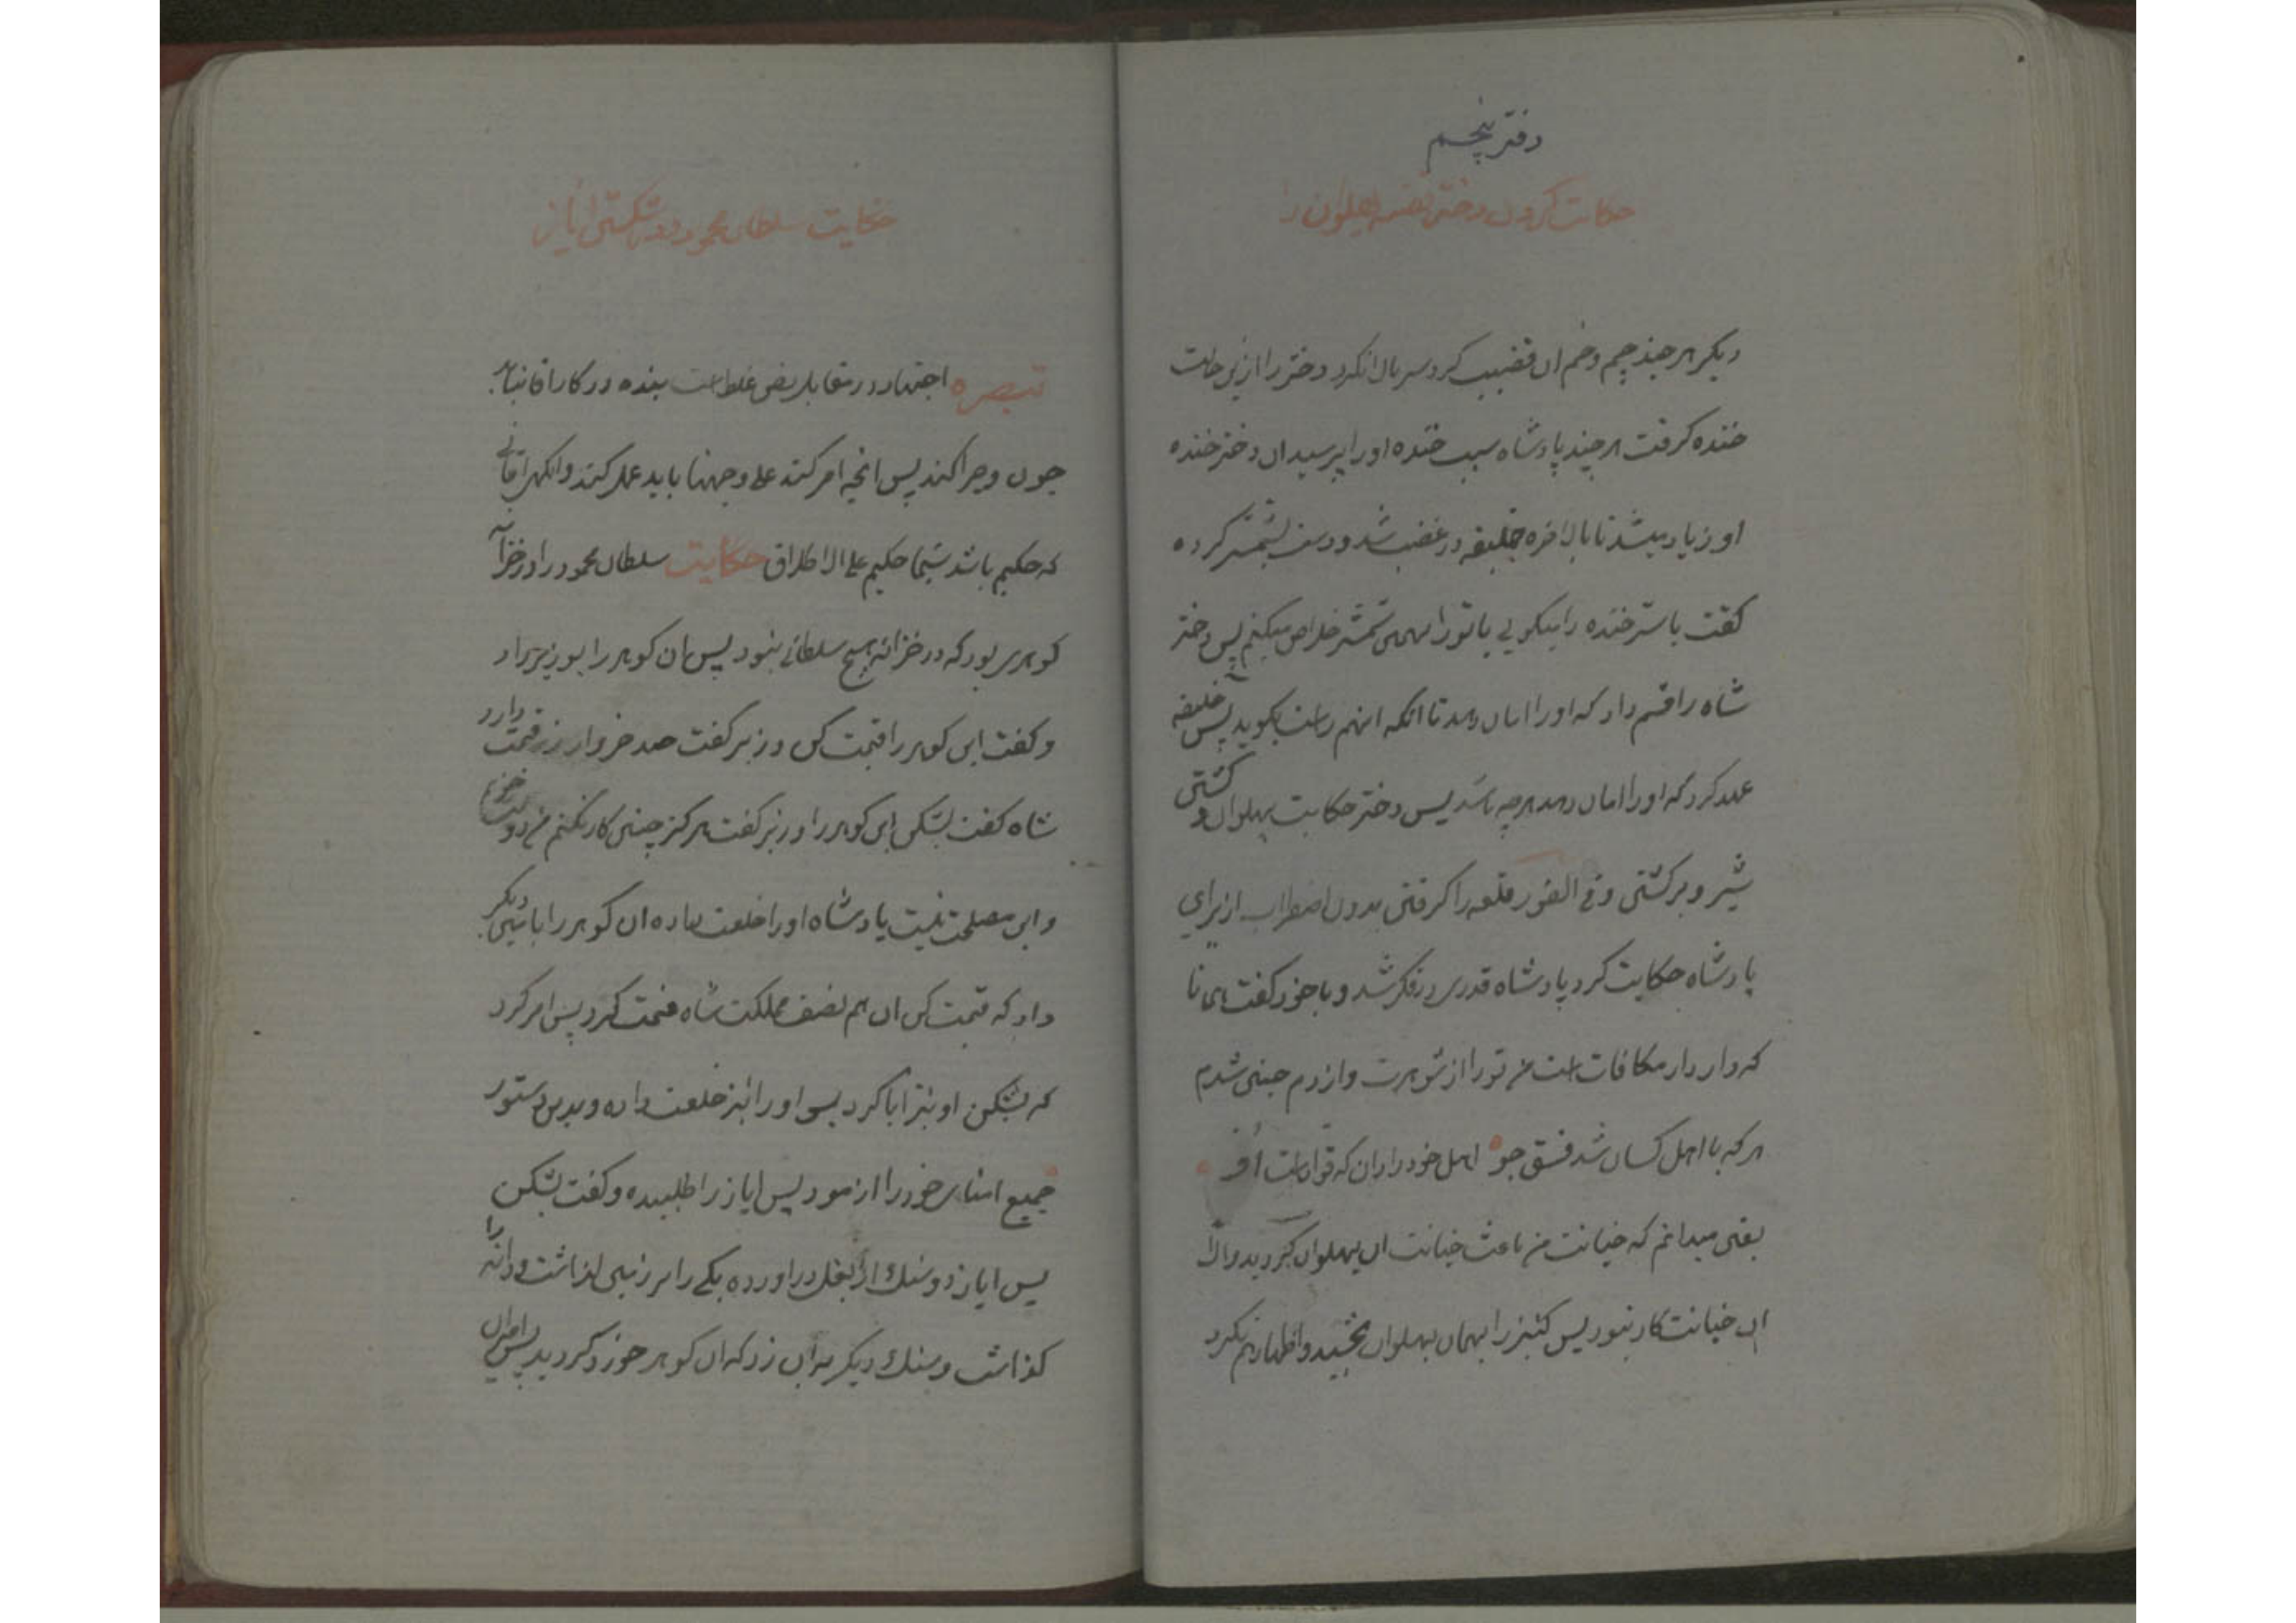 دفتر پنجم
حکایت کردن دختر قصه پهلوان را
دیکر هر چند چم و خم ان قضیب کرد سر بالا نکرد دختر را ازین حالت
خنده کرفت هر چند پادشاه سبب خنده او را پرسید ان دختر خنده
او زیاد میشد تا بالاخره خلیفه در غضب شد و دست بشمشیر کرده
کفت یا سر خنده را میکویی یا تو را بهمین شمشیر خلاص میکنم پس دختر
شاه را قسم داد که او را امان دهد تا انکه اینهم راست بکوید پس خلیفه
عهد کرد که او را امان دهد هر چه باشد پس دختر حکایت پهلوان و کشتی
شیر و برکشتن و فی الفور قلعه را کرفتن بدون اضطراب از برای
پادشاه حکایت کرد پادشاه قدری در فکر شد و با خود کفت همانا
که دار دار مکافات است من تو را از شوهرت وازدم چنین شدم
هر که با اهل کسان شد فسق جو اهل خود را دان که قواد است او
یقین میدانم که خیانت من باعث خیانت ان پهلوان کردید والا
ان خیانت کار نبود پس کنیز را بهمان پهلوان بخشید و اظهار هم نکرد
حکایت سلطان محمود در شکستن ایاز
تبصره اجتهاد در مقابل نص غلط است بنده در کار اقا نباید
چون و چرا کند پس انچه امر کند علی وجهها باید عمل کند وانکهی اقائی
که حکیم باشد سیما حکیم علی الاطلاق حکایت سلطان محمود را در خزانه
کوهری بود که در خزانه هیچ سلطانی نبود پس ان کوهر را بوزیر داد
و کفت این کوهر را قیمت کن وزیر کفت صد خروار زر قیمت دارد
شاه کفت بشکن این کوهر را وزیر کفت هرکز چنین کار نکنم من دولت خواهم
و این مصلحت نیست پادشاه او را خلعت داده ان کوهر را با نیمی دیکر
داد که قیمت کن ان هم نصف مملکت شاه قیمت کرد پس امر کرد
که بشکن او نیز ابا کرد پس او را نیز خلعت داده و بدین دستور
جمیع امنای خود را ازمود پس ایاز را طلبیده و کفت بشکن
پس ایاز دو سنك از بغل دراورده یکی را بر زمین کذاشت و دانه را
کذاشت و سنك دیکر بر ان زد که ان کوهر خورد کردید پس امیران